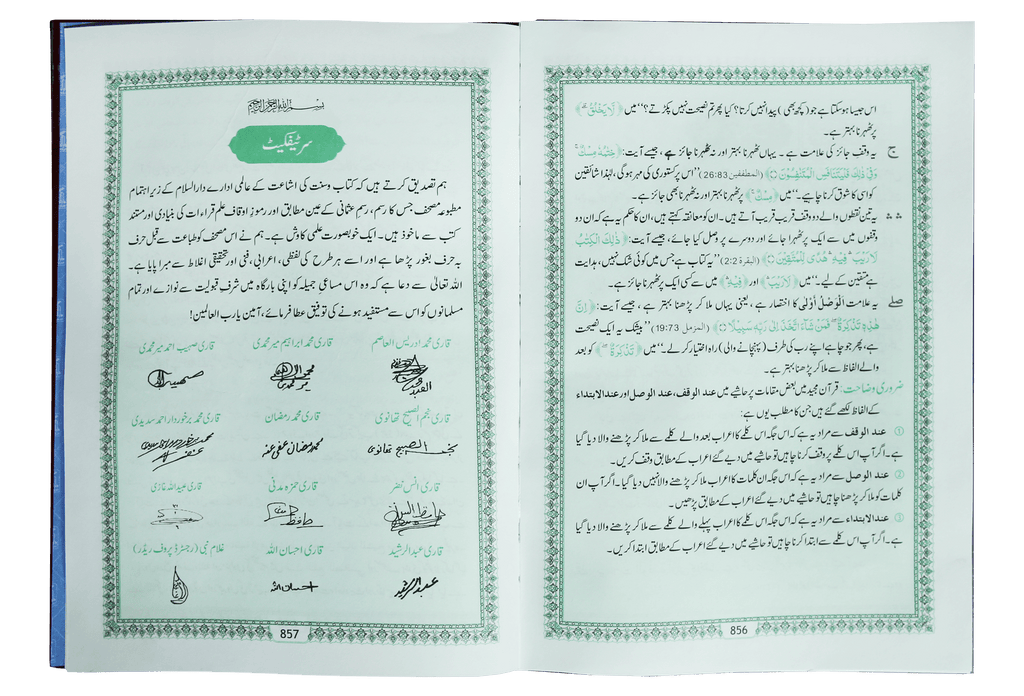 اس جیسا ہوسکتا ہے جو (کچھ بھی) پیدا نہیں کرتا؟ کیا پھر تم نصیحت نہیں پکڑتے؟‘‘ میں ﴿لَا يَخْلُقُ﴾
پر ٹھہرنا بہتر ہے۔
ج یہ وقف جائز کی علامت ہے۔ یہاں ٹھہرنا بہتر اور نہ ٹھہرنا جائز ہے، جیسے آیت: ﴿خِتٰمُهٗ مِسْكٌ
وَفِيْ ذٰلِكَ فَلْيَتَنَافَسِ الْمُتَنٰفِسُوْنَ﴾ (المطففین 26:83) ’’اس پر کستوری کی مہر ہو گی، لہٰذا شائقین
کو اسی کا شوق کرنا چاہیے۔‘‘ میں ﴿مِسْكٌ﴾ پر ٹھہرنا بہتر اور نہ ٹھہرنا بھی جائز ہے۔
∴ ∴ یہ تین نقطوں والے دو وقف قریب قریب آتے ہیں۔ ان کو معانقہ کہتے ہیں، ان کا حکم یہ ہے کہ ان دو
وقفوں میں سے ایک پر ٹھہرا جائے اور دوسرے پر وصل کیا جائے، جیسے آیت: ﴿ذٰلِكَ الْكِتٰبُ
لَا رَيْبَ فِيْهِ هُدًى لِّلْمُتَّقِيْنَ﴾ (البقرۃ 2:2) ’’یہ کتاب ہے جس میں کوئی شک نہیں، ہدایت
ہے متقین کے لیے۔‘‘ میں ﴿لَا رَيْبَ﴾ اور ﴿فِيْهِ﴾ میں سے کسی ایک پر ٹھہرنا جائز ہے۔
صلے یہ علامت اَلْوَصْلُ اَوْلٰى کا اختصار ہے، یعنی یہاں ملا کر پڑھنا بہتر ہے، جیسے آیت: ﴿اِنَّ
هٰذِهٖ تَذْكِرَةٌ فَمَنْ شَآءَ اتَّخَذَ اِلٰى رَبِّهٖ سَبِيْلًا﴾ (المزمل 19:73) ’’بیشک یہ ایک نصیحت
ہے، پھر جو چاہے اپنے رب کی طرف (پہنچانے والی) راہ اختیار کر لے۔‘‘ میں ﴿تَذْكِرَةٌ﴾ کو بعد
والے الفاظ سے ملا کر پڑھنا بہتر ہے۔
ضروری وضاحت: قرآن مجید میں بعض مقامات پر حاشیے میں عند الوقف، عند الوصل اور عند الابتداء
کے الفاظ لکھے گئے ہیں جن کا مطلب یوں ہے:
① عند الوقف سے مراد یہ ہے کہ اس جگہ اس کلمے کا اعراب بعد والے کلمے سے ملا کر پڑھنے والا دیا گیا
ہے۔ اگر آپ اس کلمے پر وقف کرنا چاہیں تو حاشیے میں دیے گئے اعراب کے مطابق وقف کریں۔
② عند الوصل سے مراد یہ ہے کہ اس جگہ ان کلمات کا اعراب ملا کر پڑھنے والا نہیں دیا گیا۔ اگر آپ ان
کلمات کو ملا کر پڑھنا چاہیں تو حاشیے میں دیے گئے اعراب کے مطابق پڑھیں۔
③ عند الابتداء سے مراد یہ ہے کہ اس جگہ اس کلمے کا اعراب پہلے والے کلمے سے ملا کر پڑھنے والا دیا گیا
ہے۔ اگر آپ اس کلمے سے ابتدا کرنا چاہیں تو حاشیے میں دیے گئے اعراب کے مطابق ابتدا کریں۔
856
بسم اللہ الرحمن الرحیم
سرٹیفکیٹ
ہم تصدیق کرتے ہیں کہ کتاب و سنت کی اشاعت کے عالمی ادارے دارالسلام کے زیر اہتمام
مطبوعہ مصحف جس کا رسم، رسمِ عثمانی کے عین مطابق اور رموزِ اوقاف علم قراءات کی بنیادی اور مستند
کتب سے ماخوذ ہیں۔ ایک خوبصورت علمی کاوش ہے۔ ہم نے اس مصحف کو طباعت سے قبل حرف
بہ حرف بغور پڑھا ہے اور اسے ہر طرح کی لفظی، اعرابی، فنی اور تحقیقی اغلاط سے مبرا پایا ہے۔
اللہ تعالیٰ سے دعا ہے کہ وہ اس مساعی جمیلہ کو اپنی بارگاہ میں شرف قبولیت سے نوازے اور تمام
مسلمانوں کو اس سے مستفید ہونے کی توفیق عطا فرمائے، آمین یا رب العالمین!
قاری محمد ادریس العاصم قاری محمد ابراہیم میر محمدی قاری صہیب احمد میر محمدی
قاری نجم الصبیح تھانوی قاری محمد رمضان قاری محمد برخوردار احمد سدیدی
نجم الصبیح تھانوی محمد رمضان عفی عنہ محمد برخوردار احمد سدیدی
قاری انس نضر قاری حمزہ مدنی قاری عبید اللہ غازی
قاری عبدالرشید قاری احسان اللہ غلام نبی (رجسٹرڈ پروف ریڈر)
عبدالرشید احسان اللہ
857